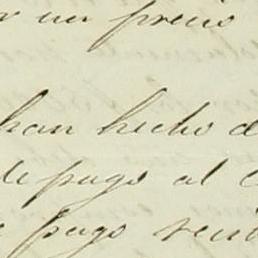 r un precio
han hecho d
de pago al c
e pago reci